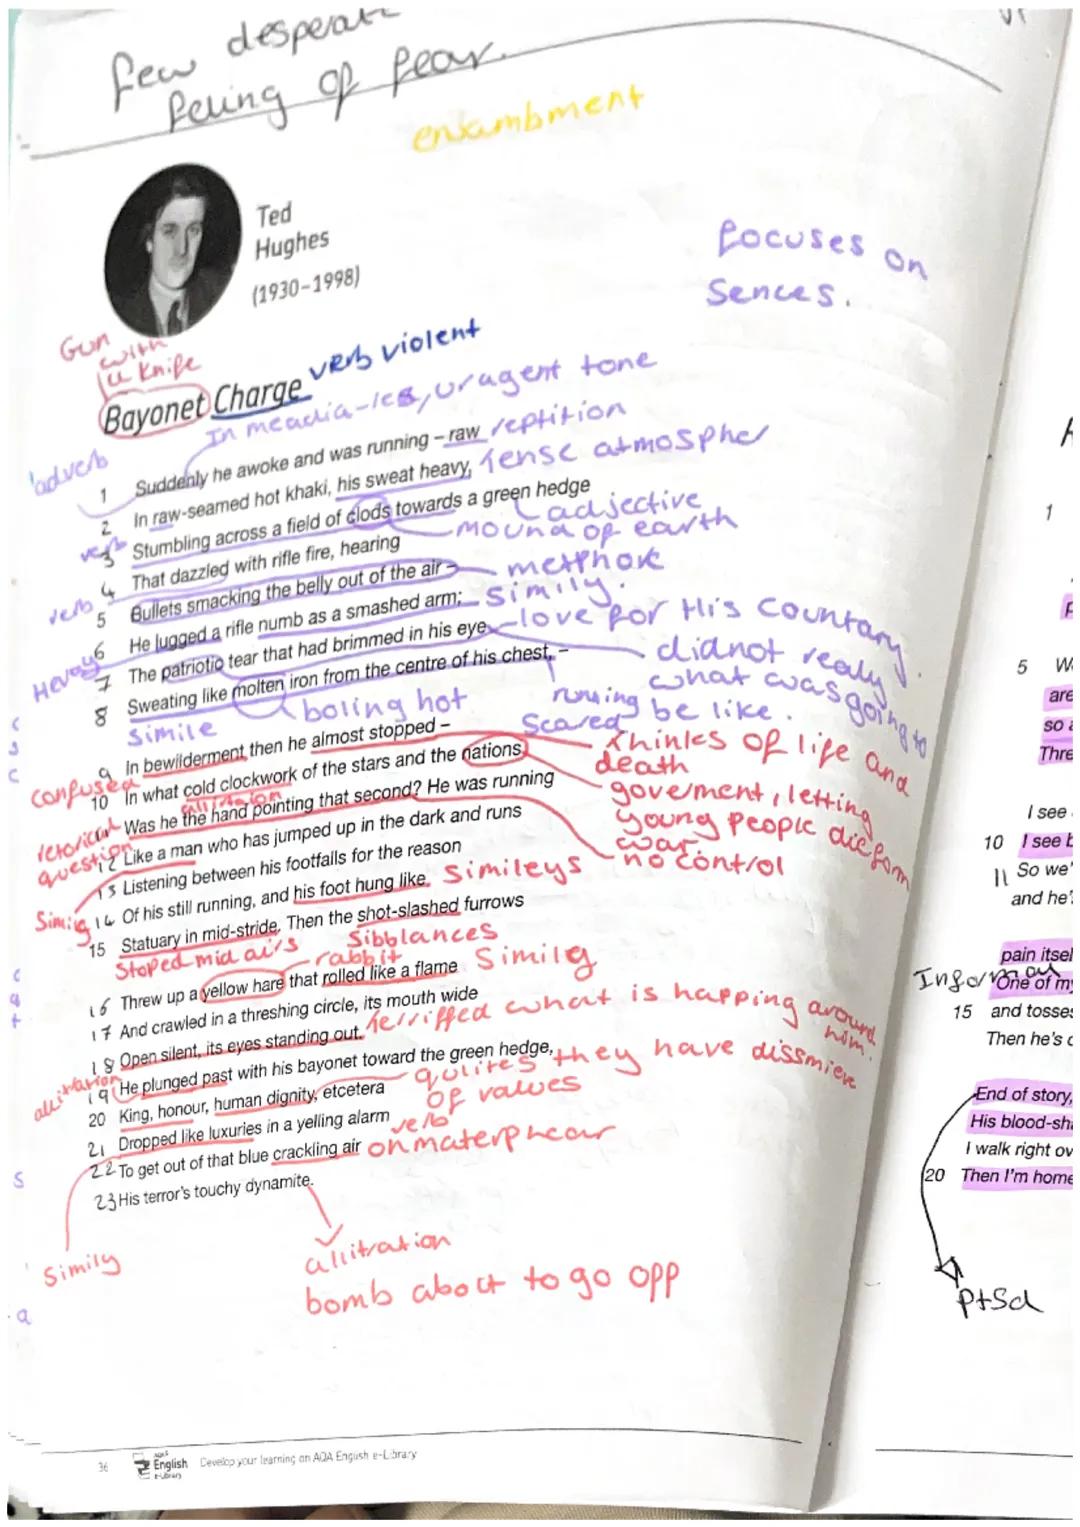 few desperate
feling of fear.
enjambment
Ted
Hughes
(1930–1998)
focuses on
Sences.
Gun
with
a knife
verb violent
Bayonet Charge
In meadia-res, uragent tone
adverb
reptition
1 Suddenly he awoke and was running – raw
Tense atmospher
2 In raw-seamed hot khaki, his sweat heavy,
adjective
verb
3 Stumbling across a field of clods towards a green hedge
mound of earth
4 That dazzled with rifle fire, hearing
methhor
verb
5 Bullets smacking the belly out of the air –
Simily.
6 He lugged a rifle numb as a smashed arm;
love for His Countary
Hevay
7 The patriotic tear that had brimmed in his eye
didnot realy
what was going to
be like.
8 Sweating like molten iron from the centre of his chest, –
Simile
boling hot
running
Scared
9 In bewilderment then he almost stopped –
thinks of life and
death
confused
10 In what cold clockwork of the stars and the nations
allitraion
goverment, letting
young people die form
war.
retorical
question
Was he the hand pointing that second? He was running
no control
12 Like a man who has jumped up in the dark and runs
13 Listening between his footfalls for the reason
Simily
14 Of his still running, and his foot hung like
Simileys
15 Statuary in mid-stride. Then the shot-slashed furrows
Stoped mid airs
Sibblances
rabbit
16 Threw up a yellow hare that rolled like a flame
Simily
17 And crawled in a threshing circle, its mouth wide
18 Open silent, its eyes standing out.
Terriffed what is happing around
him.
allitration
19 He plunged past with his bayonet toward the green hedge,
qulites they have dissmiev
of values
20 King, honour, human dignity, etcetera
21 Dropped like luxuries in a yelling alarm
verb
22 To get out of that blue crackling air
onmaterphear
23 His terror's touchy dynamite.
Simily
allitration
bomb about to go opp
36
AQA
English
e-Library
Develop your learning on AQA English e-Library
1
5 We
are
so a
Thre
I see
10 I see b
11 So we'
and he'
pain itsel
Informal
One of my
15 and tosses
Then he's c
End of story,
His blood-sha
I walk right ov
20 Then I'm home
PtSd